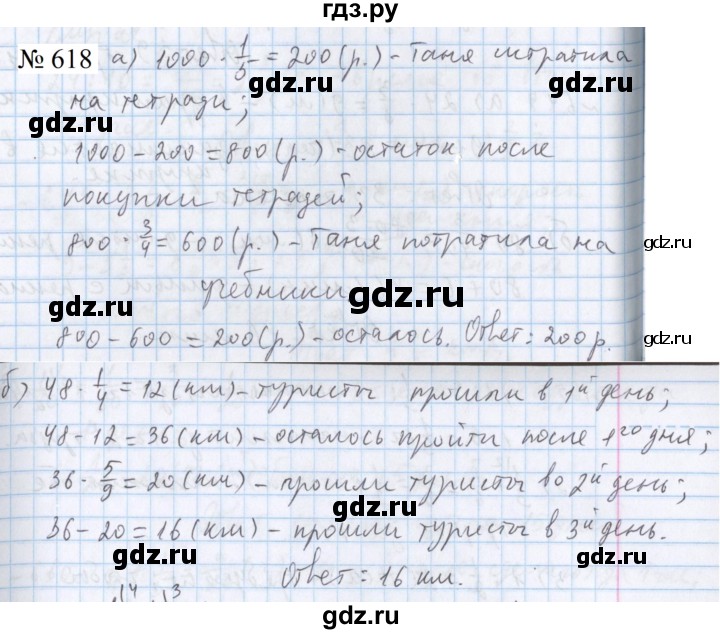 гдз.ру
№ 618 а) 1000 · 1/5 = 200 (р.) - Таня истратила
на тетради;
gdz.ru gdz.ru gdz.ru
1000 - 200 = 800 (р.) - остаток после
покупки тетрадей;
800 · 3/4 = 600 (р.) - Таня потратила на
gdz.ru gdz.ru gdz.ru
учебники
800 - 600 = 200 (р.) - осталось. Ответ: 200 р.
gdz.ru gdz.ru gdz.ru
б) 48 · 1/4 = 12 (км) - туристы прошли в 1й день;
48 - 12 = 36 (км) - осталось пройти после 1го дня;
gdz.ru gdz.ru gdz.ru
36 · 5/9 = 20 (км) - прошли туристы во 2й день;
36 - 20 = 16 (км) - прошли туристы в 3й день.
gdz.ru gdz.ru gdz.ru
Ответ: 16 км.
gdz.ru